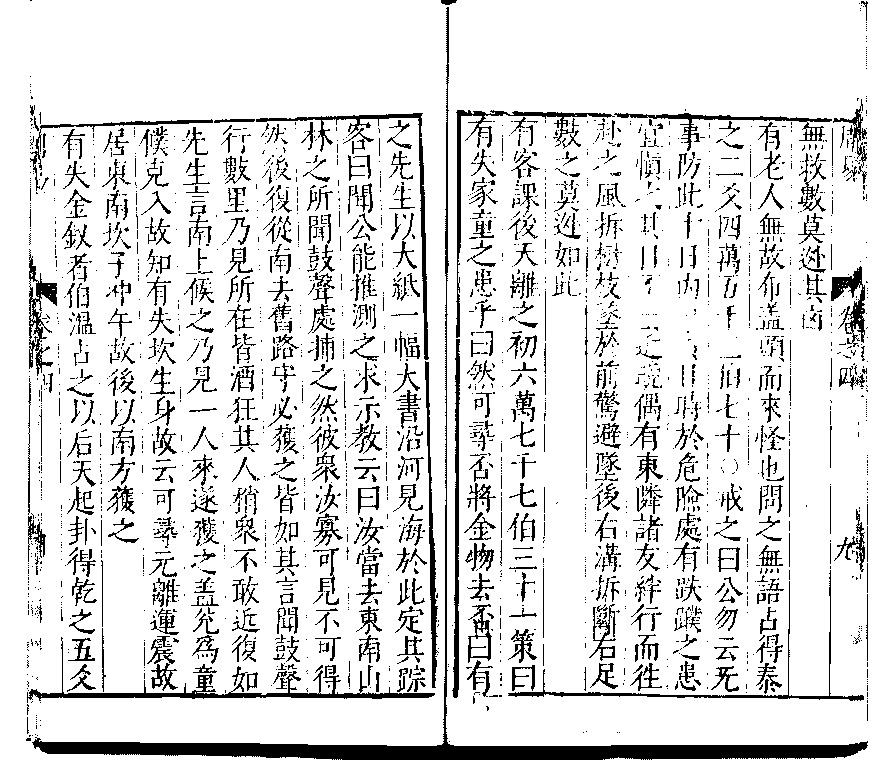 無救數莫逃其
有老人無故布盖頭而來怪也問之無語占得泰
之二爻四萬五千伯七十〇戒之曰公勿云死
事防此十日内日時於危險處有跌蹼之患
宜愼之其日偶有東隣諸友絆行而徃
赴之風拆樹枝墜於前驚避墜後右溝拆斷右足
數之莫逃如此
有客課後天離之初六萬七千七伯三十一策曰
有失家童之患乎曰然可尋否將金物去否曰有
之先生以大紙一幅大書沿河見海於此定其踪
客曰聞公能推測之求示教云曰汝當去東南山
林之所聞鼓聲處捕之然彼衆汝寡可見不可得
然後復從南去舊路守必獲之皆如其言聞鼓聲
行數里乃見所在皆酒狂其人稍衆不敢近復如
先生言南上候之乃見一人來遂獲之盖兊爲童
僕克入故知有失坎生身故云可尋元離運震故
居東南坎子冲午故後以南方獲之
有失金釵者伯溫占之以后天起卦得乾之五爻
卷之四
九
卷之四